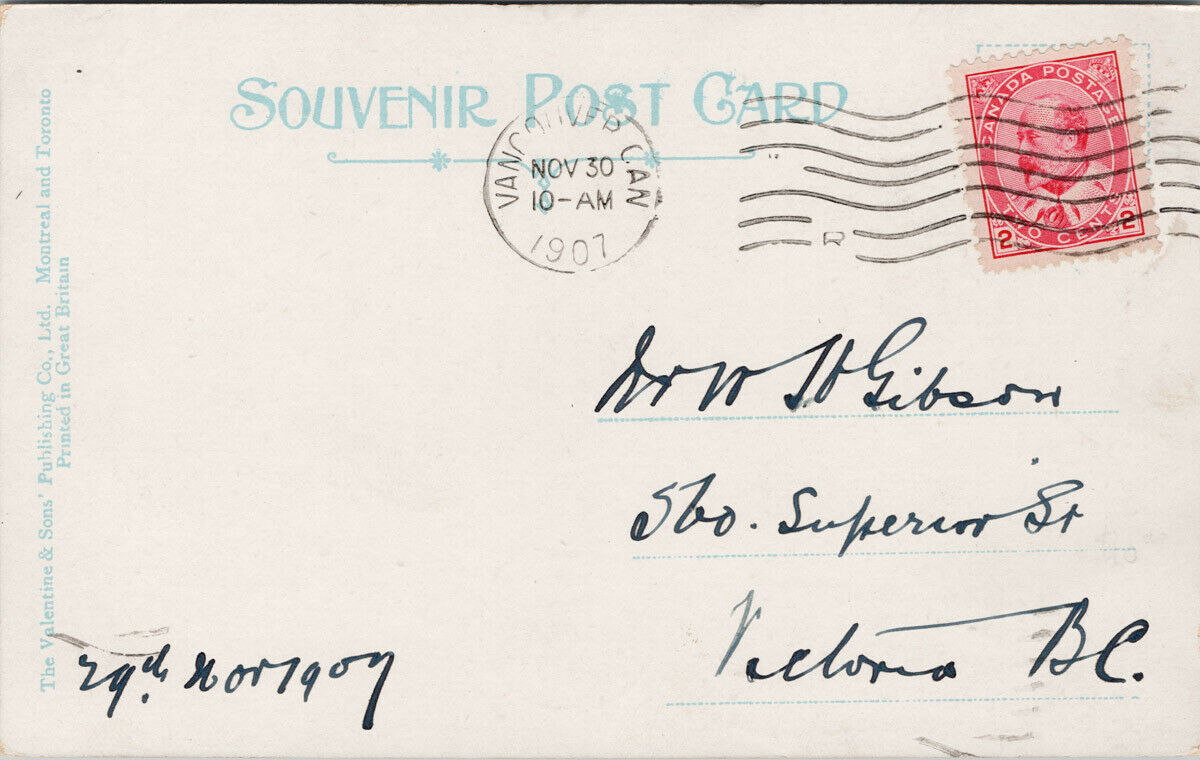 SOUVENIR POST CARD
CANADA POSTAGE
2 TWO CENTS 2
VANCOUVER CAN
NOV 30
10-AM
1907
R
The Valentine & Sons' Publishing Co., Ltd. Montreal and Toronto
Printed in Great Britain
Dr W H Gibson
560. Superior St
Victoria B.C.
29th. Nov 1907